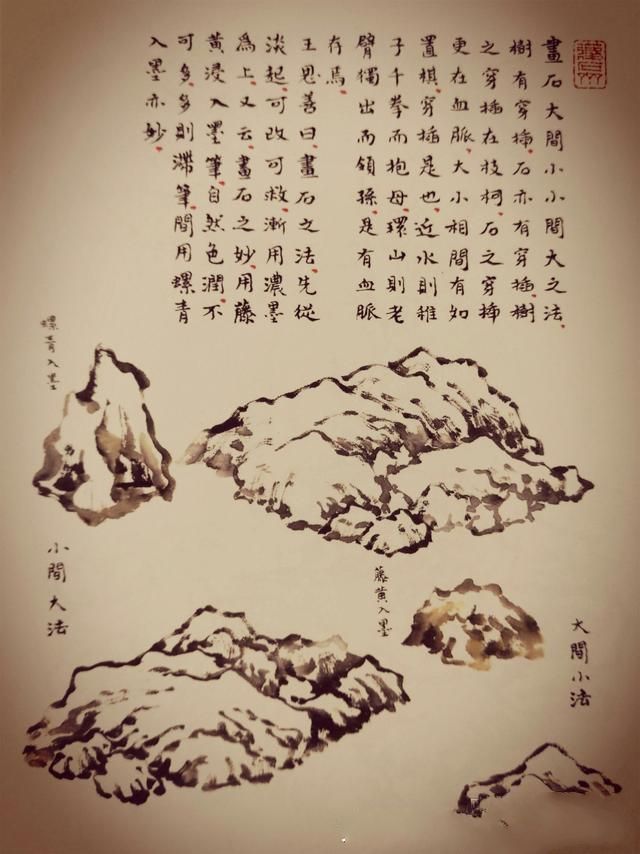 畫石大間小小間大之法
樹有穿插石亦有穿插樹
之穿插在枝柯石之穿插
更在血脈大小相間有如
置棋穿插是也近水則稚
子千拳而抱母環山則老
臂獨出而領孫是有血脈
存焉
王思善曰畫石之法先從
淡起可改可救漸用濃墨
為上又云畫石之妙用藤
黃浸入墨筆自然色潤不
可多多則滯筆間用螺青
入墨亦妙
螺青入墨
小間大法
藤黃入墨
大間小法